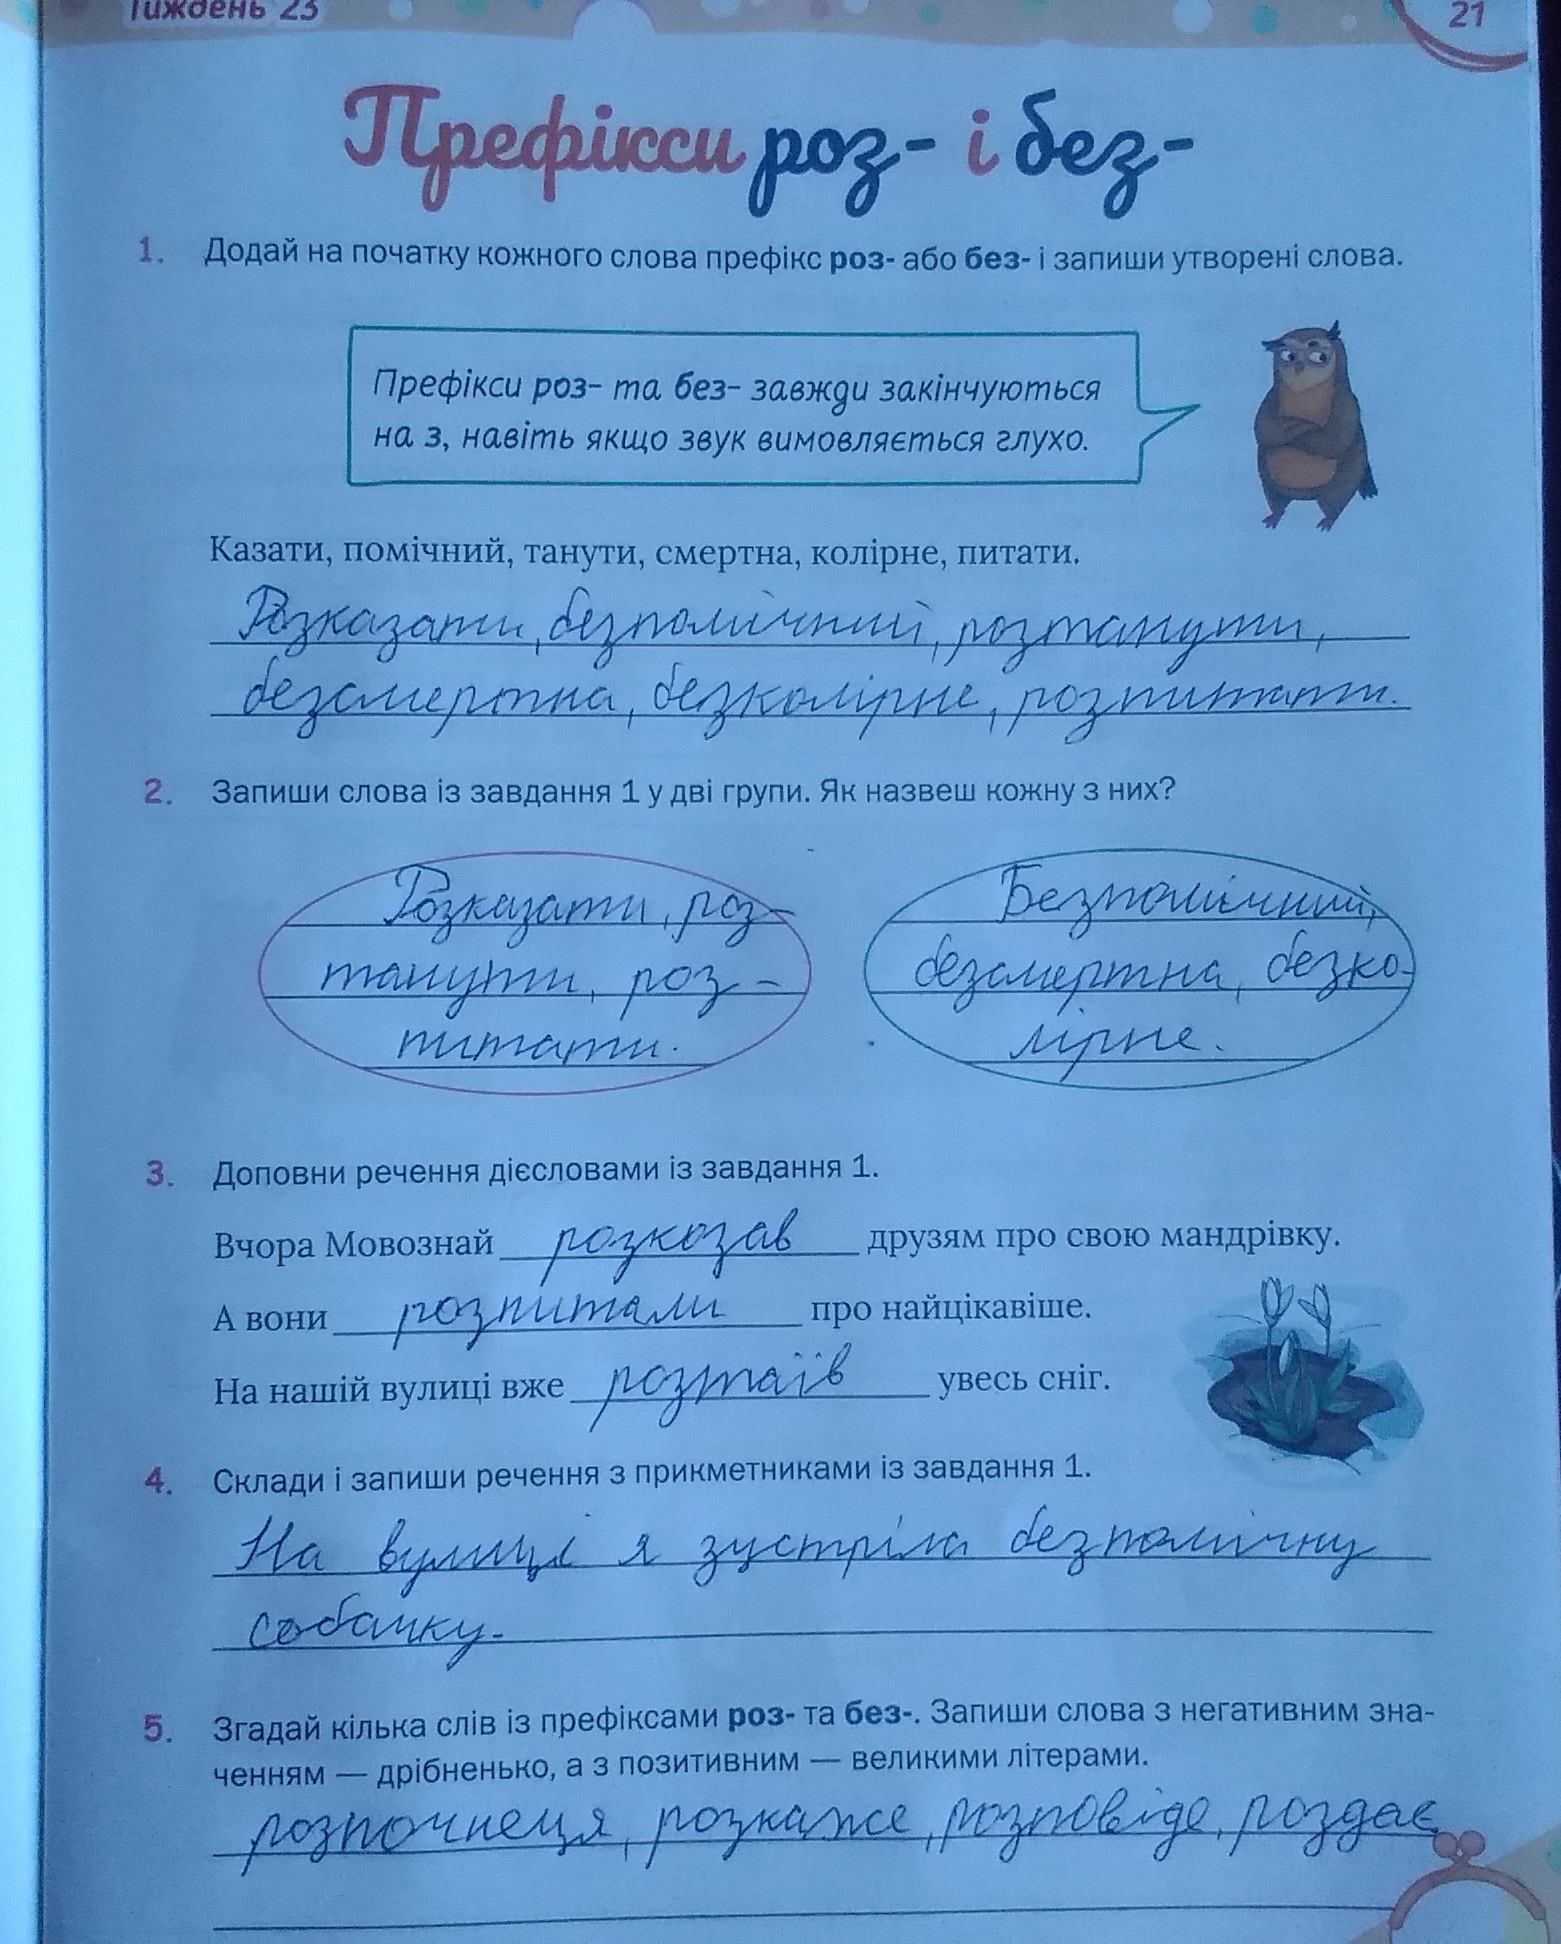 Тиждень 23
21
Префікси роз- і без-
1. Додай на початку кожного слова префікс роз- або без- і запиши утворені слова.
Префікси роз- та без- завжди закінчуються
на з, навіть якщо звук вимовляється глухо.
Казати, помічний, танути, смертна, колірне, питати.
Розказати, безпомічний, розтанути,
безсмертна, безколірне, розпитати.
2. Запиши слова із завдання 1 у дві групи. Як назвеш кожну з них?
Розказати, роз-
танути, роз-
питати.
Безпомічний,
безсмертна, безко-
лірне.
3. Доповни речення дієсловами із завдання 1.
Вчора Мовознай розкозав друзям про свою мандрівку.
А вони розпитали про найцікавіше.
На нашій вулиці вже розтаїв увесь сніг.
4. Склади і запиши речення з прикметниками із завдання 1.
На вулиці я зустріла безпомічну
собачку.
5. Згадай кілька слів із префіксами роз- та без-. Запиши слова з негативним зна-
ченням — дрібненько, а з позитивним — великими літерами.
розпочнеця, розкаже, розповіде, роздає